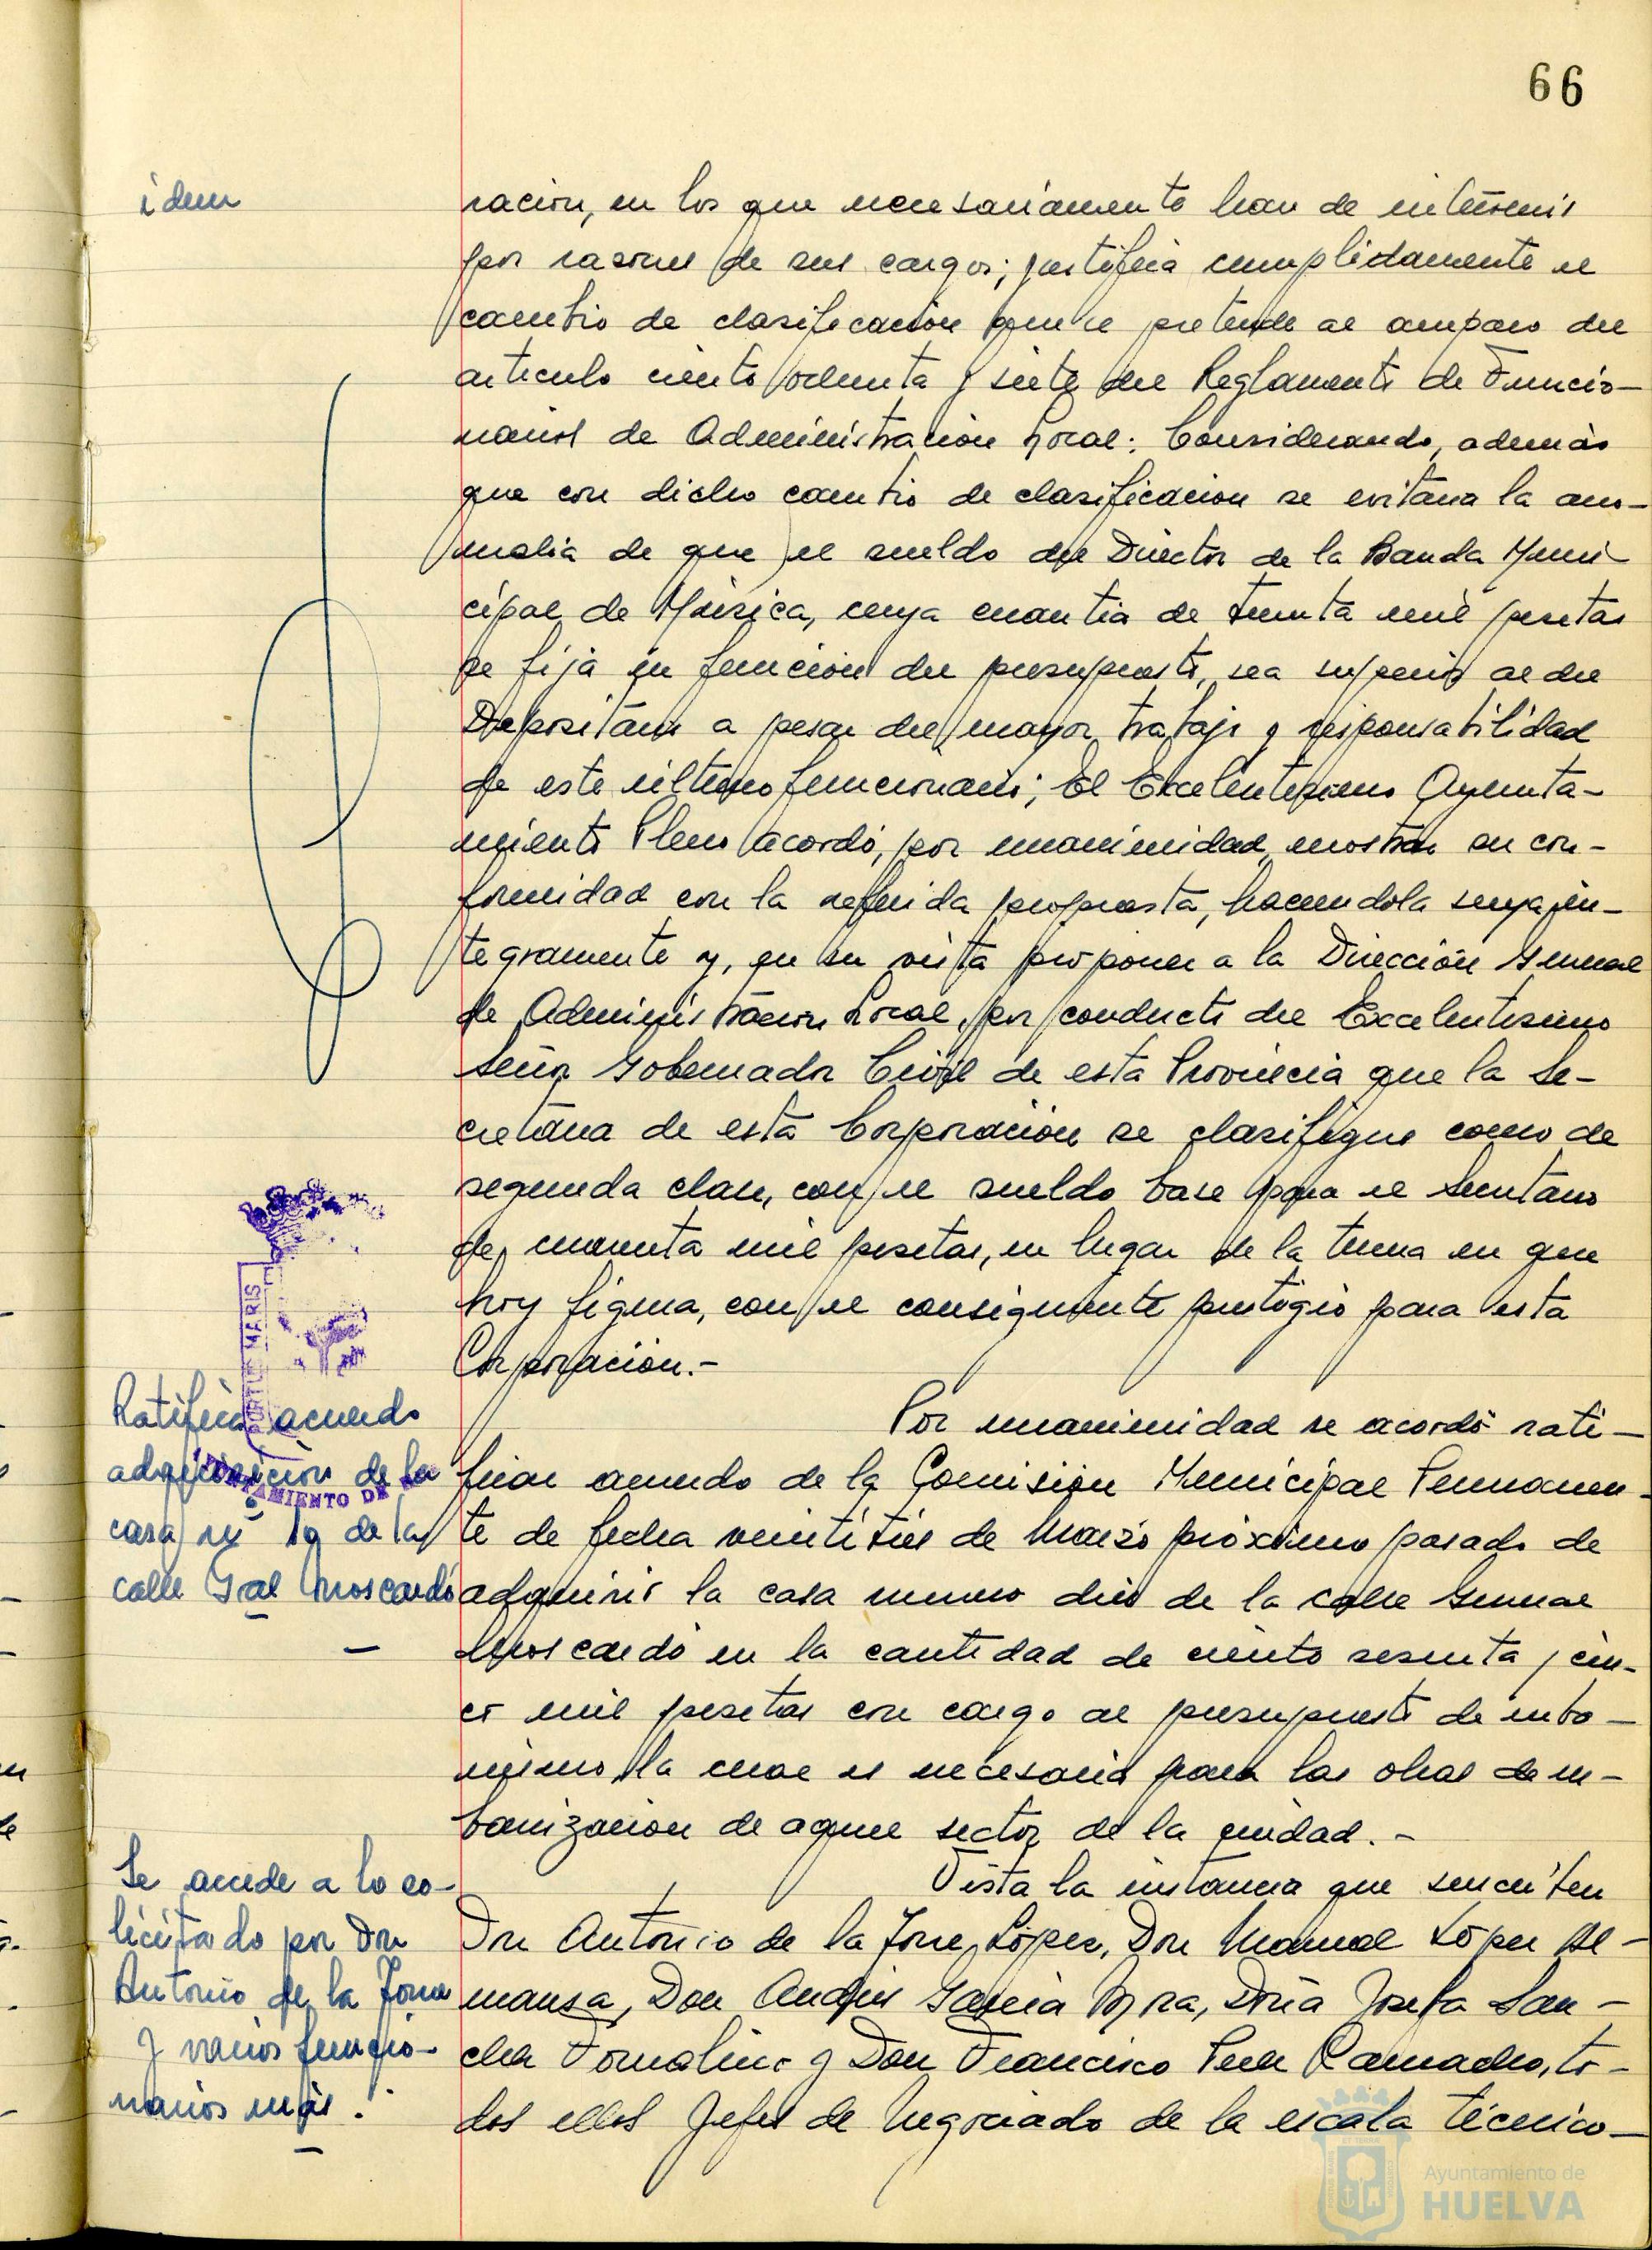 66
idem
ración, en los que necesariamente han de intervenir
por razones de sus cargos; justifica cumplidamente el
cambio de clasificación que se pretende al amparo del
articulo ciento ochenta y siete del Reglamento de Funcio-
narios de Administración Local: Considerando, además
que con dicho cambio de clasificacion se evitaria la ano-
malia de que el sueldo del Director de la Banda Muni-
cipal de Música, cuya cuantia de treinta mil pesetas
se fija en función del presupuesto, sea superior al del
Depositario a pesar del mayor trabajo y responsabilidad
de este último funcionario; El Excelentisimo Ayunta-
miento Pleno acordó, por unanimidad, mostrar su con-
formidad con la referida propuesta, haciendola suya ín-
tegramente y, en su vista proponer a la Dirección General
de Administración Local, por conducto del Excelentisimo
Señor Gobernador Civil de esta Provincia que la Se-
cretaria de esta Corporación se clasifique como de
segunda clase, con el sueldo base para el Secretario
de cuarenta mil pesetas, en lugar de la tercera en que
hoy figura, con el consiguiente prestigio para esta
Corporación.-
PORTUS MARIS
AYUNTAMIENTO DE
Ratifica acuerdo
adquisición de la
casa nº 10 de la
calle Gral Moscardó
Por unanimidad se acordó rati-
ficar acuerdo de la Comisión Municipal Permanen-
te de fecha veintitres de Marzo próximo pasado de
adquirir la casa numero diez de la calle General
Moscardó en la cantidad de ciento sesenta y cin-
co mil pesetas con cargo al presupuesto de urba-
nismo, la cual es necesaria para las obras de ur-
banización de aquel sector de la ciudad.-
Se accede a lo so-
licitado por Don
Antonio de la Torre
y varios funcio-
narios más.
Vista la instancia que suscriben
Don Antonio de la Torre López, Don Manuel López Al-
mansa, Don Andrés Garcia, Doña Josefa San-
chez y Don Francisco Camacho, to-
dos ellos Jefes de Negociado de la escala técnico-
Ayuntamiento de
HUELVA